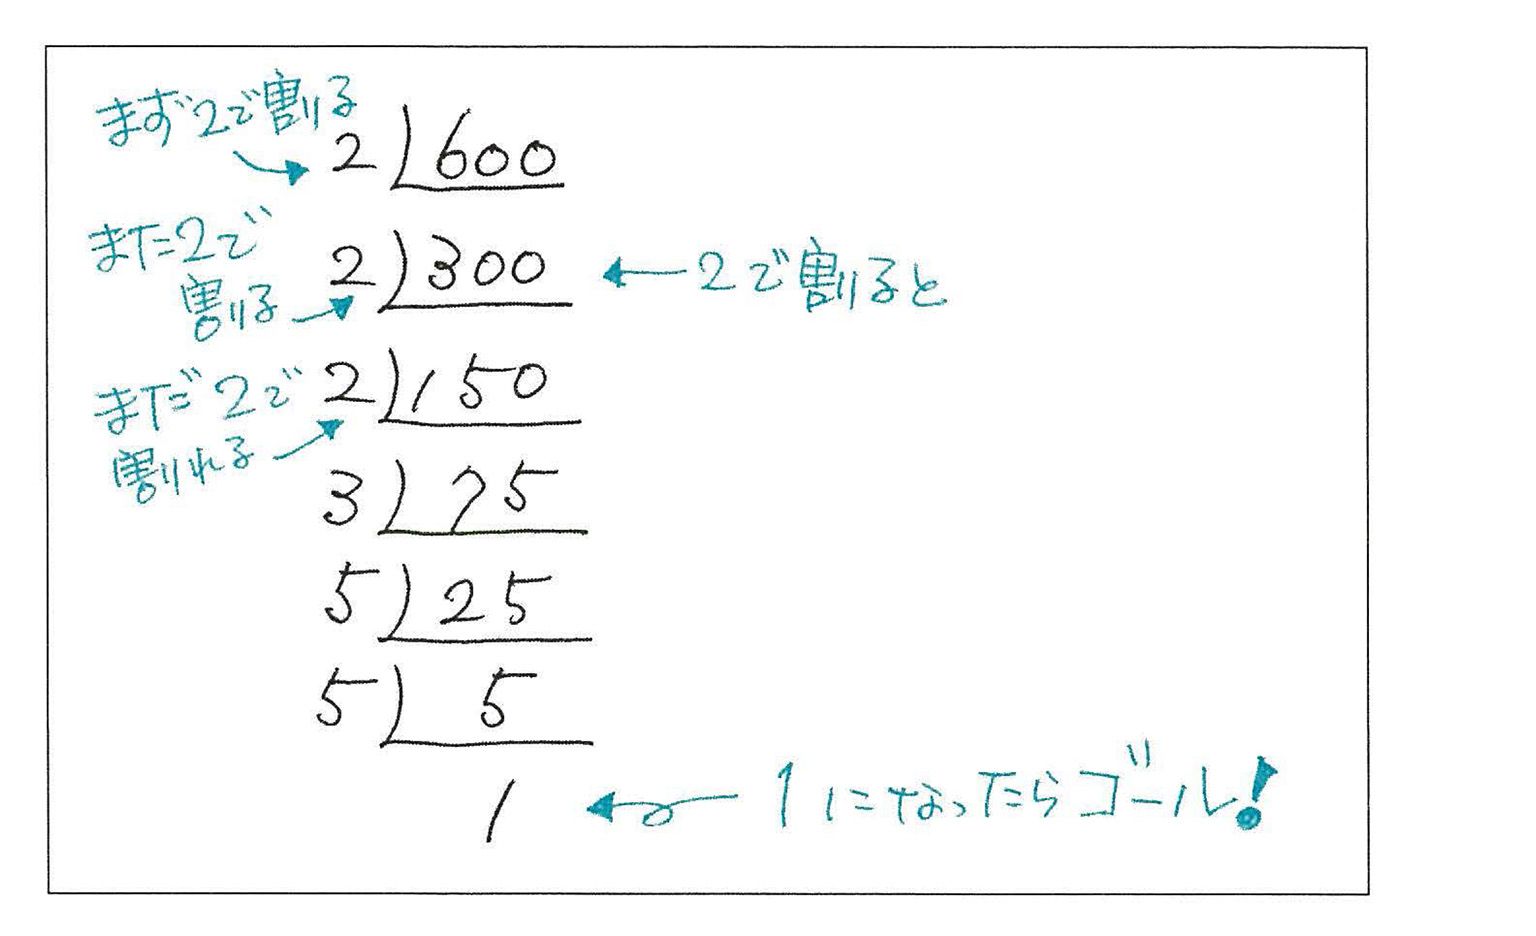 まず2で割る
2)600
また2で
割る
2)300
2で割ると
まだ2で
割れる
2)150
3)75
5)25
5)5
1
1になったらゴール!